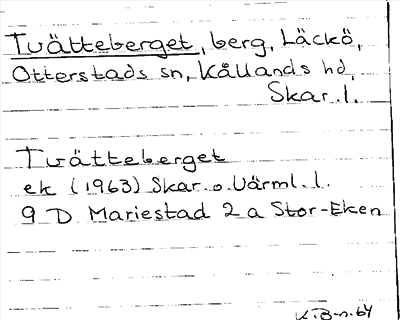 Tvätteberget, berg, Läckö,
Otterstads sn, Kållands hd,
Skar. l.
Tvätteberget
ek (1963) Skar. o. Värml. l.
9 D Mariestad 2 a Stor-Eken
K.B-n. 64